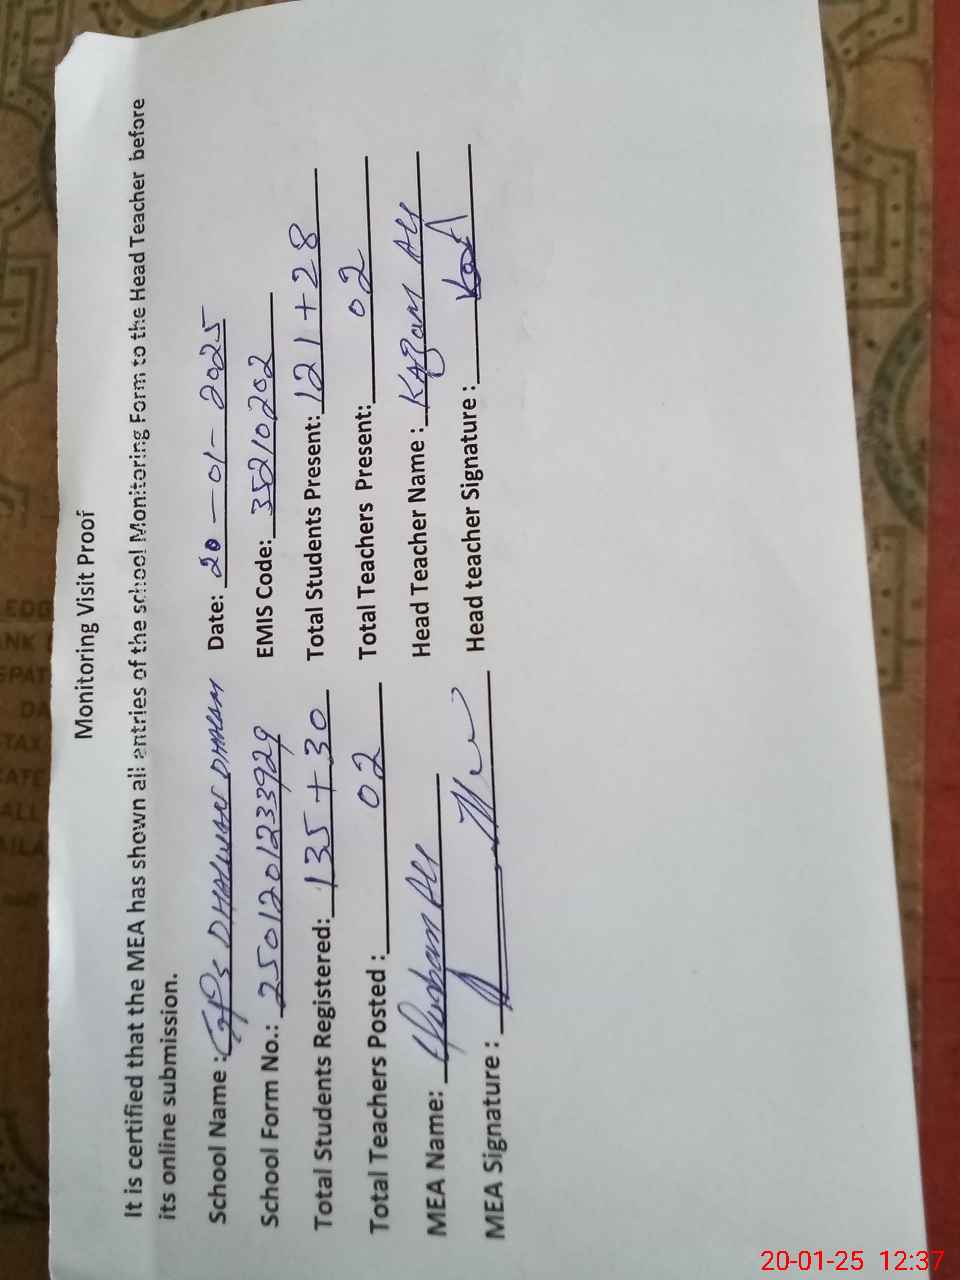 Monitoring Visit Proof
It is certified that the MEA has shown all entries of the school Monitoring Form to the Head Teacher before
its online submission.
School Name : GPS DHALWAN DHALAM Date: 20-01-2025
School Form No.: 2501201233929 EMIS Code: 35210202
Total Students Registered: 135+30 Total Students Present: 121+28
Total Teachers Posted : 02 Total Teachers Present: 02
MEA Name: Ali Head Teacher Name : Kazam Ali
MEA Signature : Head teacher Signature :
20-01-25 12:37